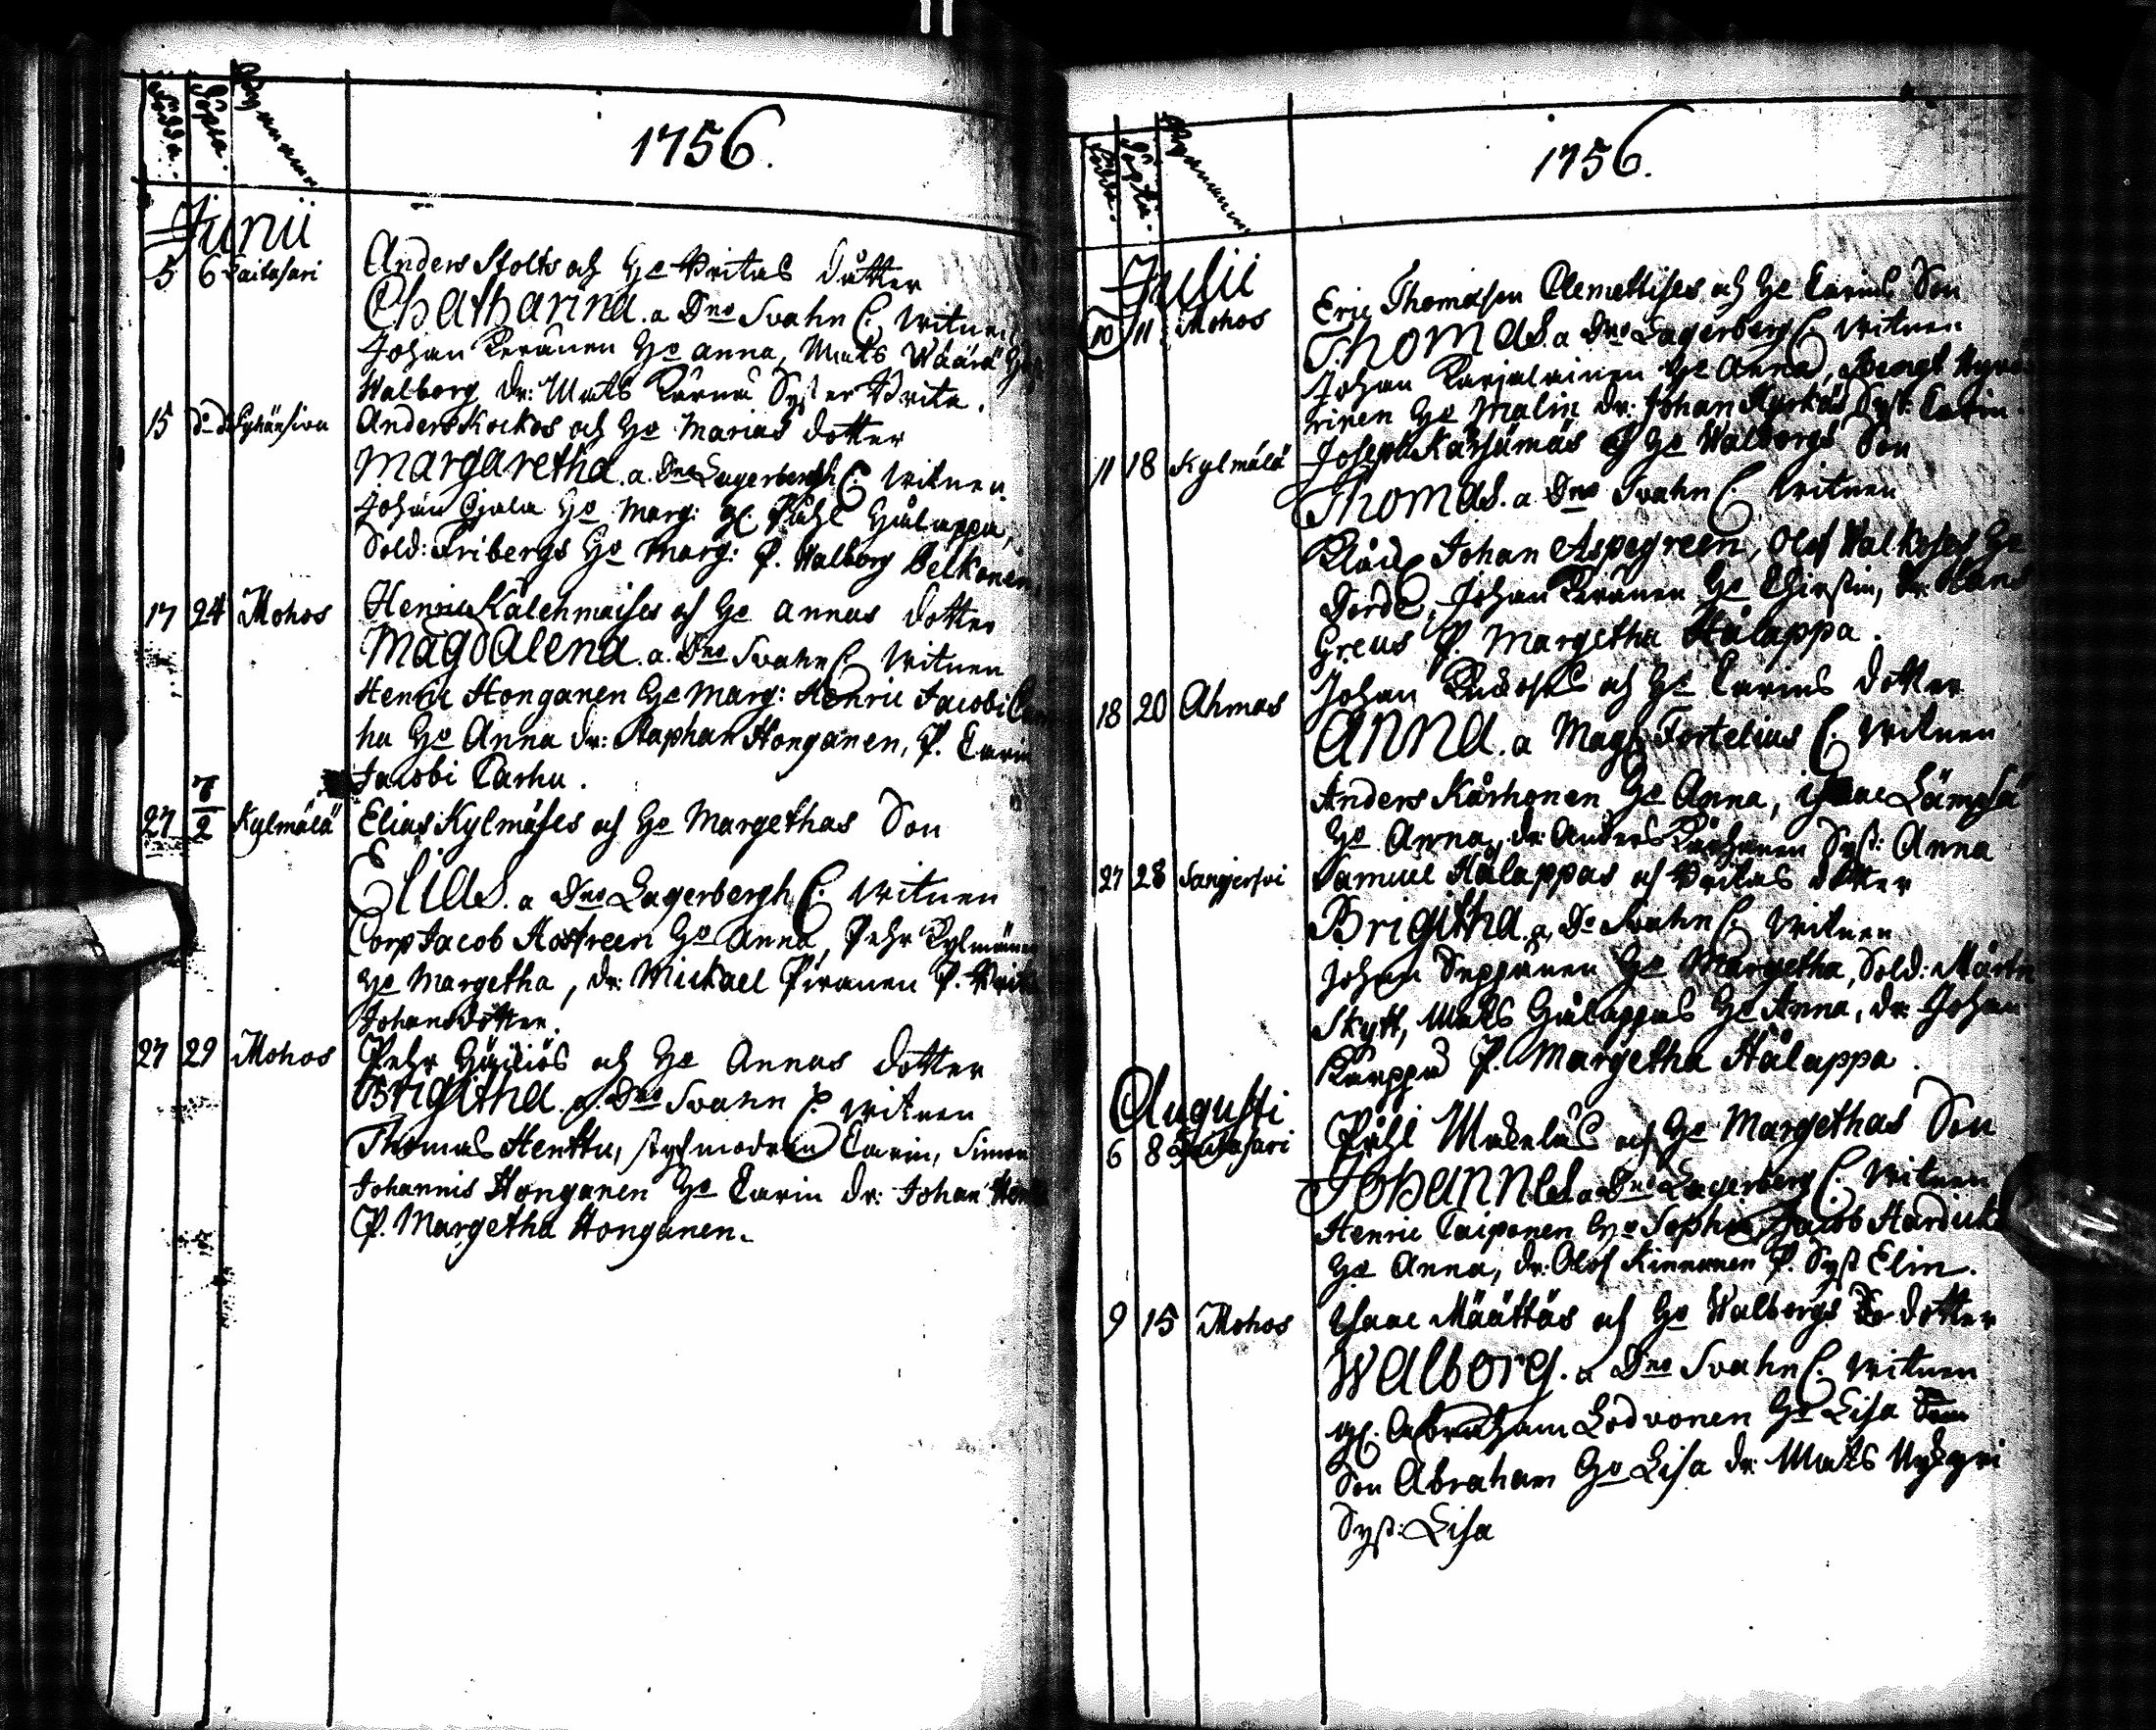 Födda. Döpta. Byanamn
1756.
Junii
5 6 Anders Stolts och Ho Britas dotter
Chatharina. a Dno Svahn C. Witnen
Johan Keränen Ho Anna, Mats Wäärä
Walborg dr: Mats Kärnä Syster Brita.
15 Anders Kockos och Ho Marias dotter
Margaretha. a. Dno Lagerbergh C. Witnen
Johan Ho Marg: gl. Påhl Hålappa,
Sold: Fribergs Ho Marg: P. Walborg
17 24 Mohos Henric och Ho Annas dotter
Magdalena. a. Dno Svahn C. Witnen
Henric Honganen Ho Marg: Henric Jacobi
hu Ho Anna dr: Staphan Honganen, P. Carin
Jacobi Karhu.
27 7/2 Kylmälä Elias Kylmäses och Ho Margethas Son
Elias. a Dno Lagerbergh C. Witnen
Corp Jacob Ho Anna, Pehr
Ho Margetha, dr: Mickael Piranen P. Brita
Johansdotter.
27 29 Mohos Pehr och Ho Annas dotter
Brigitha. a. Dno Svahn C. Witnen
Thomas Henttu, styfmodren Carin, Simon
Johannis Honganen Ho Carin dr: Johan
P. Margetha Honganen.
Födda. Döpta. Byanamn
1756.
Julii
10 11 Mohos Eric Thomasson Clemettises och Ho Carins Son
Thomas. a Dno Lagerberg C. Witnen
Johan Karjalainen Ho Anna, Bengt
rinen Ho Malin dr: Johan Syst: Carin.
11 18 Kylmälä Joseph Kärsämäs och Ho Walborgs Son
Thomas. a Dno Svahn C. Witnen
Johan Aspegreen, Olof Ho
Johan Keränen Ho Chirstin, dr: Hans
Greus P. Margetha Hålappa.
18 20 Ahmas Johan och Ho Carins dotter
Anna. a Mag. Fortelius C. Witnen
Anders Kårhonen Ho Anna, Isaac Lämsä
Ho Anna, dr: Anders Syst: Anna
27 28 Samuel Hålappas och Britas dotter
Brigitha. a Do Svahn C. Witnen
Johan Seppänen Ho Margetha, Sold: Mårten
Skytt, Mats Hålappas Ho Anna, dr: Johan
Karppa P. Margetha Hålappa.
Augusti
6 8 Påhl och Ho Margethas Son
Johannes. a Dno Lagerberg C. Witnen
Henric Caiponen Ho Sophia Jacob
Ho Anna, dr: Olof Kinnunen P. Syst Elin.
9 15 Mohos Isaac Määttäs och Ho Walborgs dotter
Walborg. a Dno Svahn C. Witnen
gl. Abraham Ho Lisa
Son Abraham Ho Lisa dr: Mats
Syst: Lisa